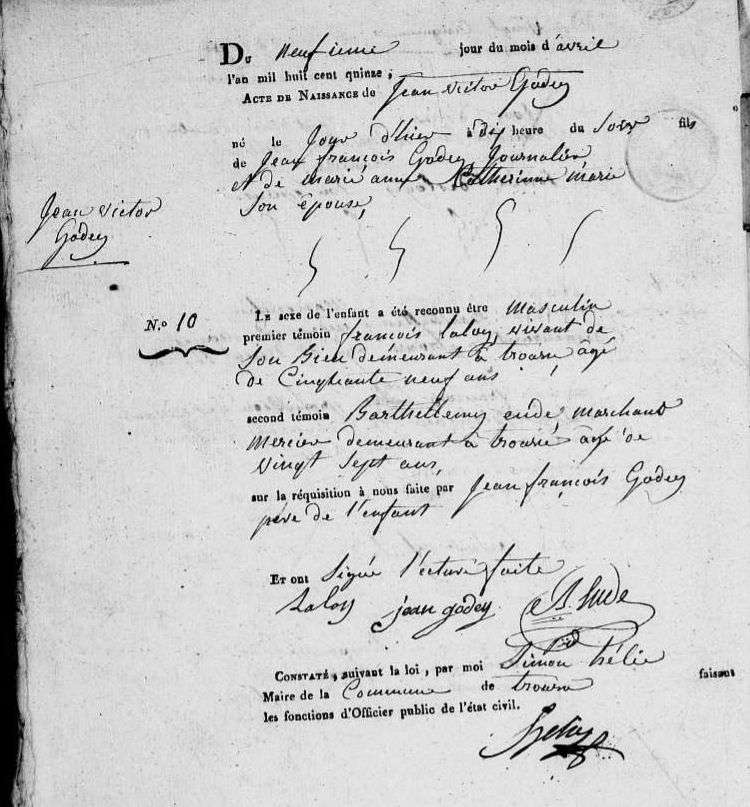 Du neufieme jour du mois d'avril
l'an mil huit cent quinze,
Acte de Naissance de Jean victor Godey
né le Jour d'hier à dix heure du Soir fils
de Jean françois Godey Journalier
et de marie anne Catherinne marie
Son epouse,
Jean victor
Godey
N.º 10
Le sexe de l'enfant a été reconnu être masculin
premier témoin françois laloy, vivant de
Son Bien demeurant à trouarn, agé
de Cinquante neuf ans
second témoin Barthellemy eude, marchant
mercier demeurant à trouarn âgé de
vingt Sept ans,
sur la réquisition à nous faite par Jean françois Godey
pere de l'enfant
Et ont Signée l'ecture faite
Laloy jean godey B. Eude
Constaté, suivant la loi, par moi Simon hélie
Maire de la Commune de trouarn faisant
les fonctions d'Officier public de l'état civil.